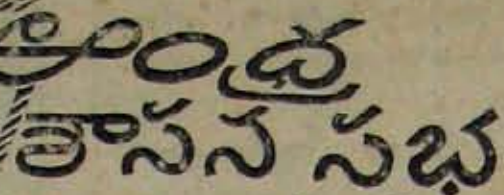 ఆంధ్ర
శాసన సభ